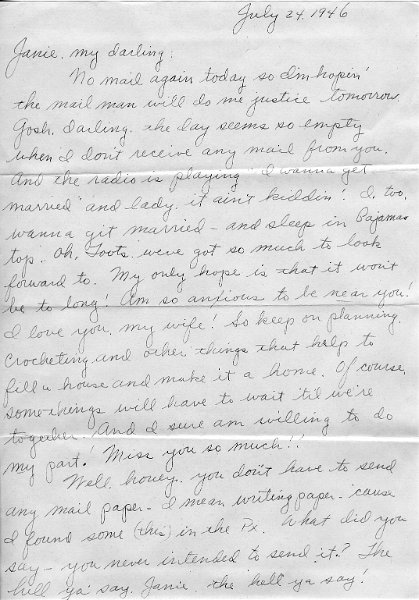 July 24, 1946
Janie, my darling:
No mail again today so I'm hopin'
the mail man will do me justice tomorrow.
Gosh, darling, the day seems so empty
when I don't receive any mail from you.
And the radio is playing "I wanna get
married" and lady, it ain't kiddin'! I, too,
wanna git married - and sleep in Pajamas
top. Oh, Toots, we've got so much to look
forward to. My only hope is that it won't
be to long! Am so anxious to be near you!
I love you, my wife! So keep on planning,
crocheting and other things that help to
fill a house and make it a home. Of course,
somethings will have to wait 'til we're
together. And I sure am willing to do
my part! Miss you so much!!
Well, honey, you don't have to send
any mail paper - I mean writing paper - 'cause
I found some (this) in the Px. What did you
say - you never intended to send it? The
hell ya' say, Janie, the hell ya say!